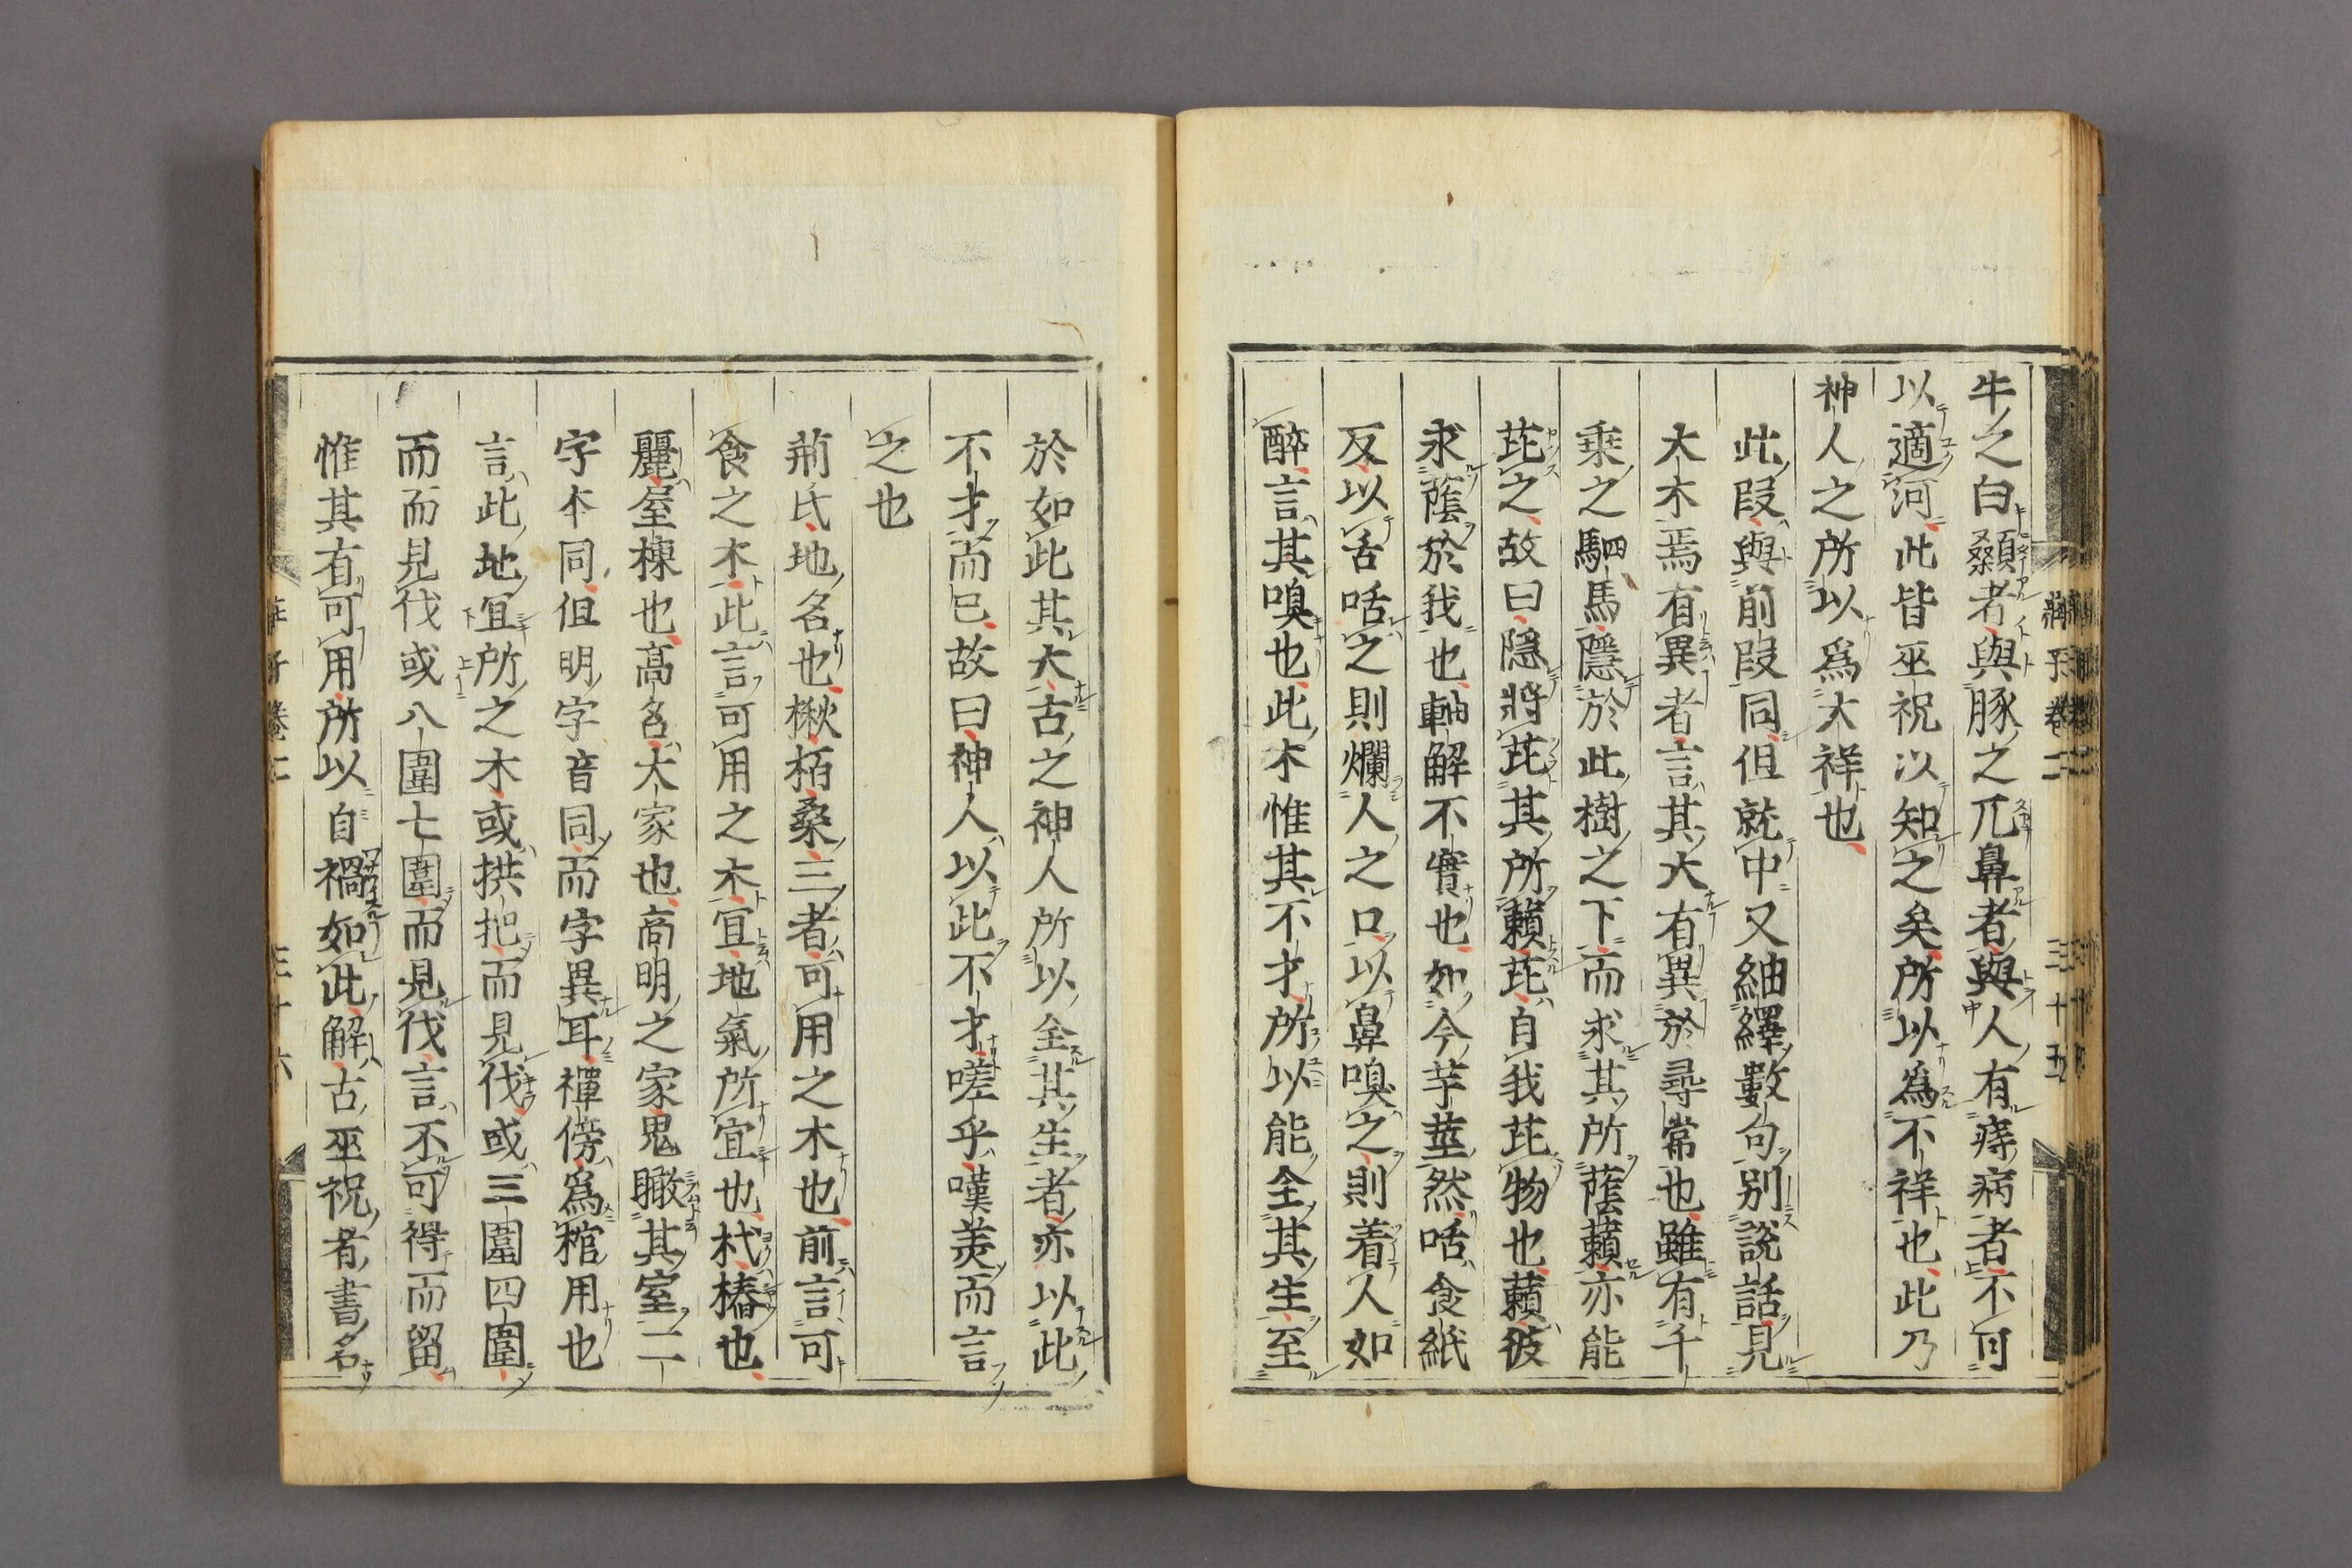 牛之白顙者與豚之亢鼻者與人有痔病者不可
以適河此皆巫祝以知之矣所以爲不祥也此乃
神人之所以爲大祥也
此段與前段同但就中又紬繹數句別說話見
大木焉有異者言其大有異於尋常也雖有千
乗之駟馬隱於此樹之下而求其所蔭藾亦能
芘之故曰隱將芘其所藾芘自我芘物也藾彼
求蔭於我也軸解不實也如今芋莖然咶食紙
反以舌咶之則爛人之口以鼻嗅之則着人如
醉言其嗅也此木惟其不才所以能全其生至
於如此其大古之神人所以全其生者亦以此
不才而已故曰神人以此不才嗟乎嘆羙而言
之也
荊氏地名也楸栢桑三者可用之木也前言可
食之木此言可用之木宜地氣所宜也杙樁也
麗屋棟也高名大家也高明之家鬼瞰其室二
字本同但明字音同而字異耳禫傍爲棺用也
言此地宜所之木或拱把而見伐或三圍四圍
而而見伐或八圍七圍而見伐言不可得而留
惟其有可用所以自禍如此解古巫祝者書名
莊子卷二
三十五
三十六